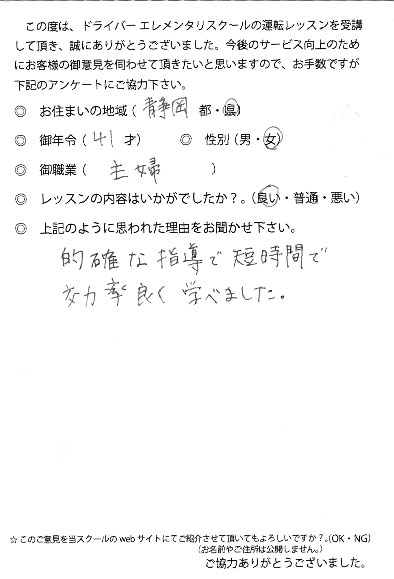 この度は、ドライバー エレメンタリスクールの運転レッスンを受講
して頂き、誠にありがとうございました。今後のサービス向上のため
にお客様の御意見を伺わせて頂きたいと思いますので、お手数ですが
下記のアンケートにご協力下さい。
◎ お住まいの地域(静岡 都・県)
◎ 御年令(41 才) ◎ 性別(男・女)
◎ 御職業( 主婦 )
◎ レッスンの内容はいかがでしたか?。(良い・普通・悪い)
◎ 上記のように思われた理由をお聞かせ下さい。
的確な指導で短時間で
効率良く学べました。
☆このご意見を当スクールのwebサイトにてご紹介させて頂いてもよろしいですか?。(OK・NG)
(お名前やご住所は公開しません。)
ご協力ありがとうございました。